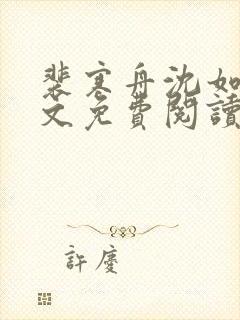 裴寒舟沈如
文免費閱讀
許慶